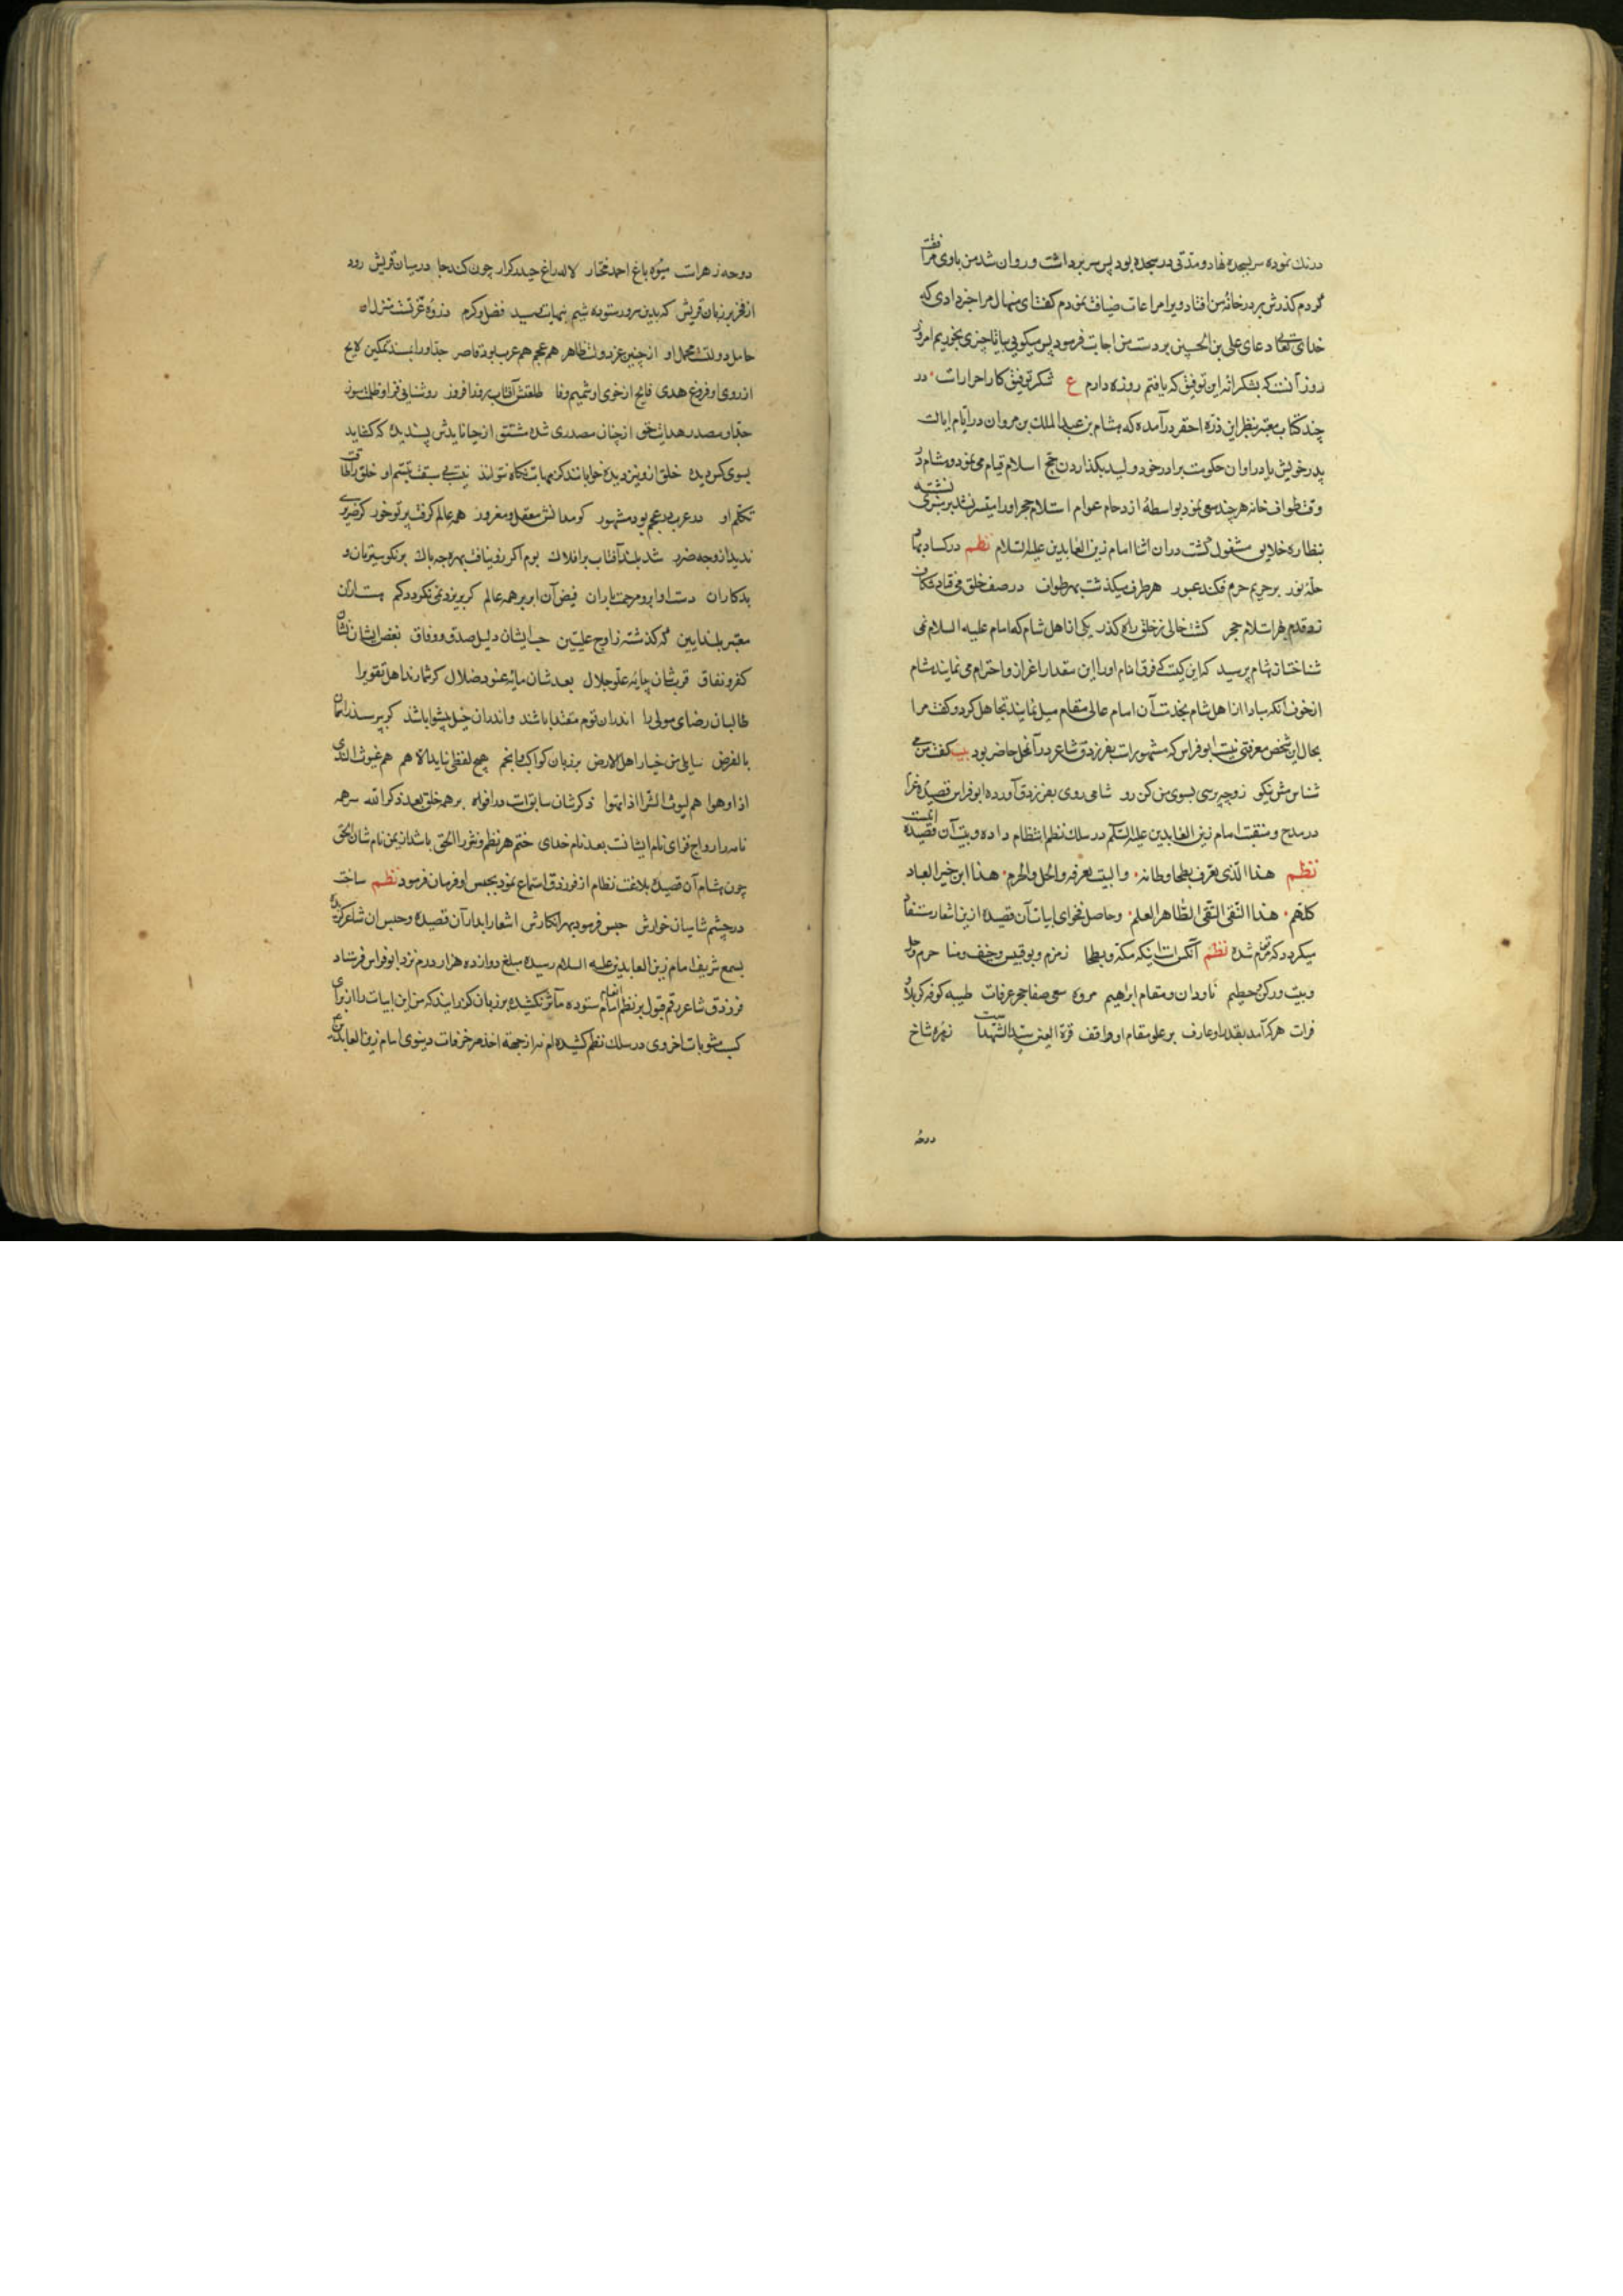 درنك نموده سر بسجده نهاد و مدتی در سجده بود پس سر برداشت و روان شد من باوی مرافقت
کردم کذرش بر در خانهٔ من افتاد ویرا مراعات ضیافت نمودم کفت ای منهال مرا خبر دادی که
خدای تعالی دعای علی بن الحسین بر دست من اجابت فرمود پس میکویی بیا تا چیزی بخوریم امروز
روز آنست که بشکرانه این توفیق که یافتم روزه دارم ع شکر توفیق کار احرار است در
چند کتاب معتبر بنظر این ذرّه احقر درآمده که هشام بن عبد الملك بن مروان در ایّام ایالت
پدر خویش یا در اوان حکومت برادر خود ولید بکذاردن حج اسلام قیام می نمود و هشام در
وقت طواف خانه هر چند سعی نمود بواسطهٔ ازدحام عوام استلام حجر او را میسر نشد بر منبری نشسته
بنظاره خلایق مشغول کشت در ان اثنا امام زین العابدین علیه السلام نظم در کساء بها
حلّه نور بر حریم حرم فکند عبور هر طرف میکذشت بهر طواف در صف خلق می فتاد شکاف
زد قدم بهر استلام حجر کشت خالی ز خلق راه کذر یکی از اهل شام که امام علیه السلام نمی
شناخت از هشام پرسید که این کیست که فرق انام او را این مقدار اعزاز و احترام می نمایند هشام
از خوف آنکه مبادا اهل شام بخدمت آن امام عالی مقام میل نمایند تجاهل کرد و کفت مرا
بحال این شخص معرفتی نیست ابو فراس که مشهور است بفرزدق شاعر در آن محل حاضر بود بیت کفت من می
شناسمش نیکو زو چه پرسی بسوی من کن رو شامی روی بفرزدق آورده ابو فراس قصیدهٔ غرا
در مدح و منقبت امام زین العابدین علیه السلم در سلك نظم انتظام داده و بیت آن قصیده اینست
نظم هذا الّذی تعرف بطحا وطاته والبیت یعرفه والحل والحرم هذا ابن خیر العباد
کلهم هذا التقی النقی الطّاهر العلم و حاصل فحوای ابیات آن قصیده ازین اشعار مستفاد
میکردد که مترجم شده نظم آنکس است اینکه مکّه و بطحا زمزم و بوقبیس و خیف و منا حرم و حل
و بیت و رکن و حطیم ناودان و مقام ابراهیم مروه سعی صفا حجر عرفات طیبه کوفه کربلا و
فرات هر که آمد بقدر او عارف بر علو مقام او واقف قرة العین سیّد الشهداست زهره شاخ
دوحه
دوحه زهراست میوه باغ احمد مختار لاله راغ حیدر کرار چون کند جا در میان قریش رود
از فخر بر زبان قریش که بدین سرور ستوده شیم بنهایت رسید فضل و کرم ذروهٔ عزّتست منزل او
حامل دولتست محمل او از چنین عز و دولت ظاهر هم عجم هم عرب بود قاصر جد او را بمسند تمکین لایح
از روی او فروغ هدی فایح از خوی او شمیم وفا طلعتش آفتاب روز افروز روشنایی فزا و ظلمت سوز
جدّ او مصدر هدایت حق از چنان مصدری شده مشتق از حیا نایدش پسندیده که کشاید
بسوی کس دیده خلق ازو نیز دیده خوابانند کز مهابت نکاه نتوانند نیست بی سبقت تبسم او خلق را طاقت
تکلّم او در عرب در عجم بود مشهور کو مدانش مغفل و مغرور همه عالم کرفت پرتو خور کر ضریری
ندید ازو چه ضرر شد بلند آفتاب بر افلاك بوم اکر زو نیافت بهره چه باك بر نکو سیرتان و
بدکاران دست او ابر و مرحمت باران فیض آن ابر بر همه عالم کر بریزد نمی نکردد کم هست ازان
معشر بلند آیین که کذشته ز اوج علیّین حب ایشان دلیل صدق و وفاق بغض ایشان نشان
کفر و نفاق قربشان پایه علو و جلال بعدشان مایه عتو و ضلال کر شمارند اهل تقوی را
طالبان رضای مولی را اندران قوم مقتدا باشند واندران خیل پیشوا باشند کر بپرسد ز آسمان
بالفرض سایلی من خیار اهل الارض بر زبان کواکب و انجم هیچ لفظی نیاید الا هم هم غیوث الندی
اذا وهبوا هم لیوث الثرا اذا نهبوا ذکرشان سابق است در افواه بر همه خلق بعد ذکر الله سر همه
نامه را رواج فزای نام ایشانست بعد نام خدای ختم هر نظم و نثر را الحق باشد از یمن نام شان رونق
چون هشام آن قصیدهٔ بلاغت نظام از فرزدق استماع نمود بحبس او فرمان فرمود نظم ساخت
در چشم شامیان خوارش حبس فرمود بهر انکارش اشعار ابدار آن قصیده و حبس ان شاعر کزیده
بسمع شریف امام زین العابدین علیه السلام رسیده مبلغ دوازده هزار درم نزد ابو فراس فرستاد
فرزدق شاعر رقم قبول بر نظم انعام امام ستوده مآثر نکشیده بر زبان کذرانید که من این ابیات را از برای
کسب مثوبات اخروی در سلك نظم کشیده ام نه از جهة اخذ مزخرفات دینوی امام زین العابدین